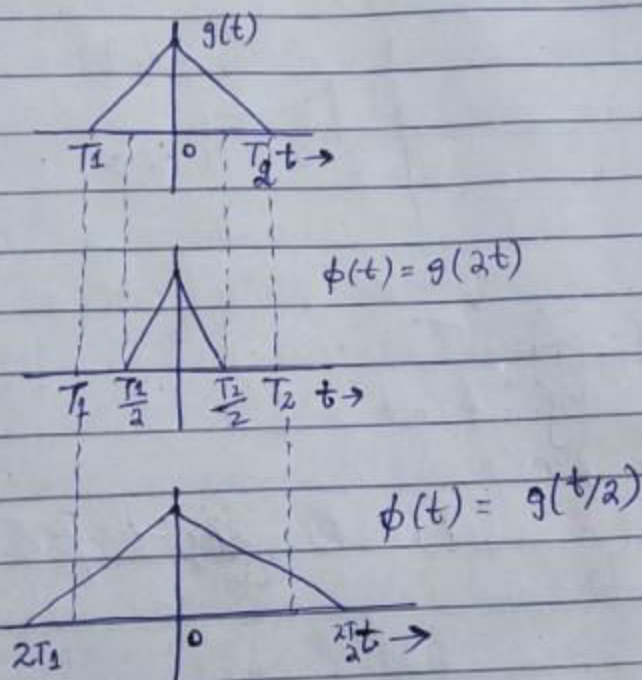 g(t)
T1 0 T2 t →
ϕ(t) = g(2t)
T1 T1/2 T2/2 T2 t →
ϕ(t) = g(t/2)
2T1 0 2T2 t →